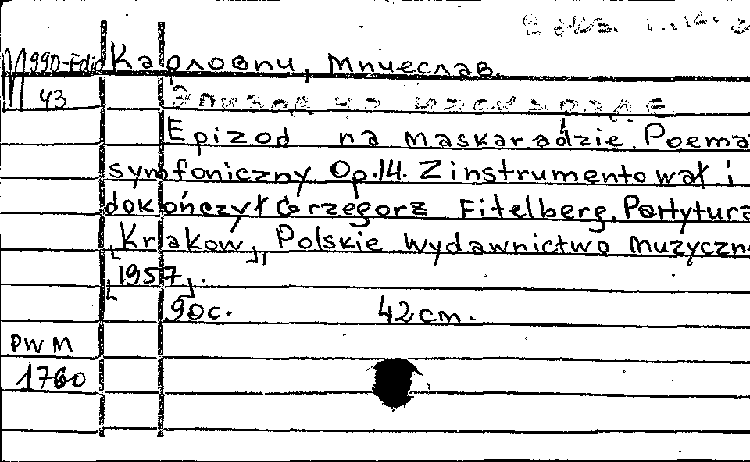 M 990-Fdid Карловпи, Мпчеслав.
43
Epizod na maskaradzie. Poema
symfoniczny Op.14. Zinstrumentował i
dokończył Grzegorz Fitelberg. Partytura
[Krakow], Polskie Wydawnictwo Muzyczn
[1957].
90c. 42cm.
PWM
1760